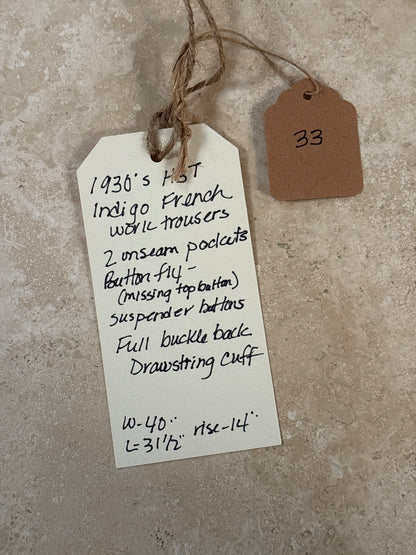 1930's HBT
Indigo French
work trousers
2 onseam pockets
Button fly-
(missing top button)
suspender buttons
Full buckle back
Drawstring cuff
W-40"
L=31 1/2" rise-14"
33